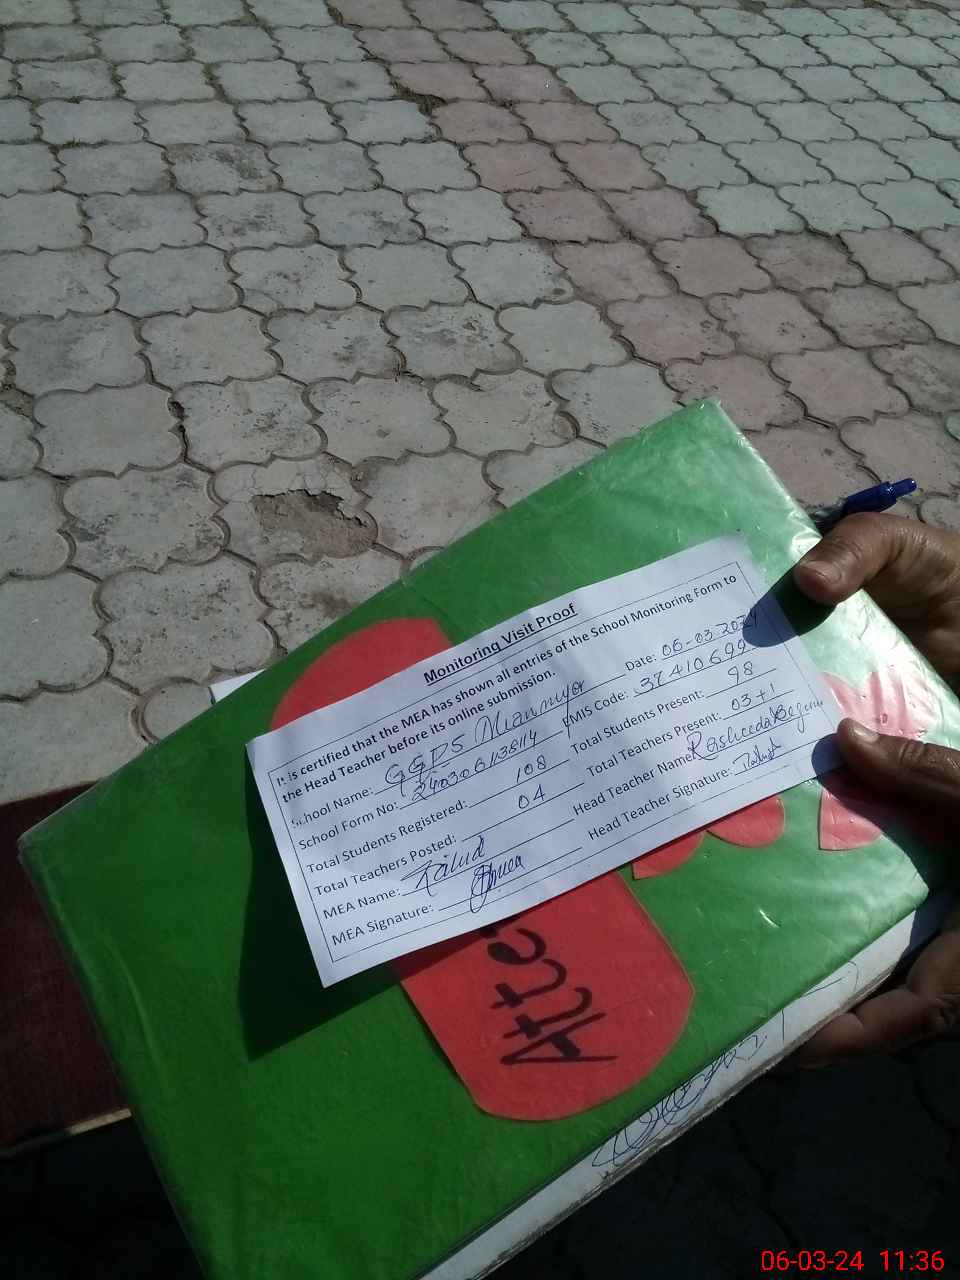 Monitoring Visit Proof
It is certified that the MEA has shown all entries of the School Monitoring Form to
the Head Teacher before its online submission.
Date: 06-03-2024
School Name: GGPS Mianmuyor
EMIS Code: 37410699
School Form No:
Total Students Present: 98
Total Students Registered: 108
Total Teachers Present: 03+1
Total Teachers Posted: 04
Head Teacher Name: Rasheeda Begum
MEA Name:
Head Teacher Signature:
MEA Signature:
Atte
06-03-24 11:36